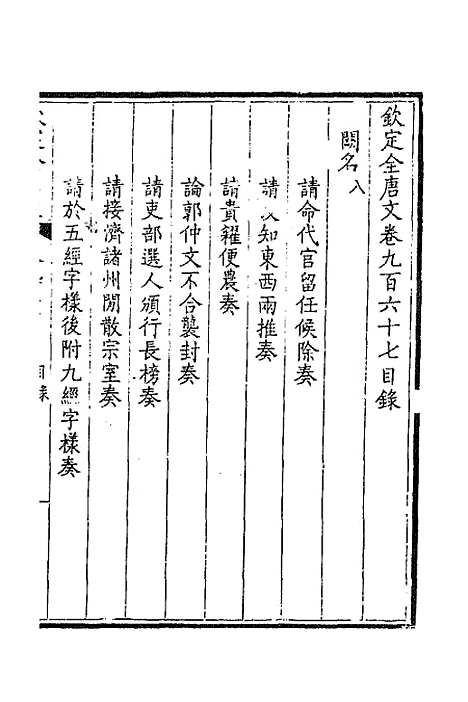 欽定全唐文卷九百六十七目錄
闕名八
請命代官留任候除奏
請知東西兩推奏
請貴糴便農奏
論郭仲文不合襲封奏
請吏部選人頒行長榜奏
請接濟諸州閒散宗室奏
請於五經字樣後附九經字樣奏
目錄
一